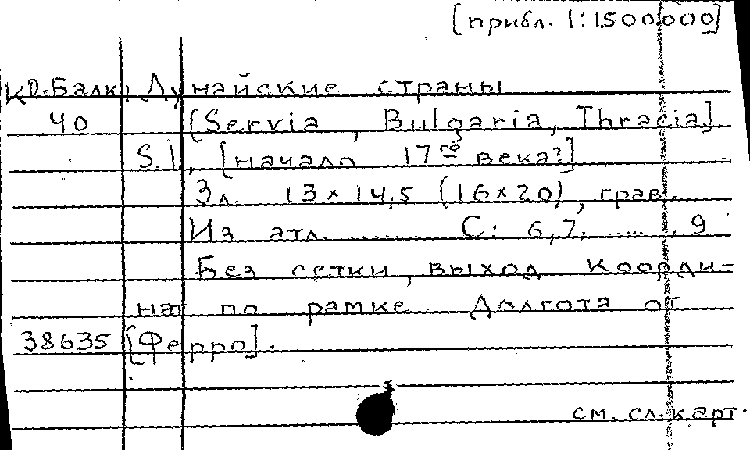 [прибл. 1:1500000]
КО.Балк. Дунайские страны
40 [Servia, Bulgaria, Thracia].
S.l., [начало 17го века?]
3л. 13×14,5 (16×20), грав.
Из атл. ........ С: 6,7, ..... , 9
Без сетки, выход коорди-
нат по рамке. Долгота от
38635 [Ферро].
см. сл. карт.